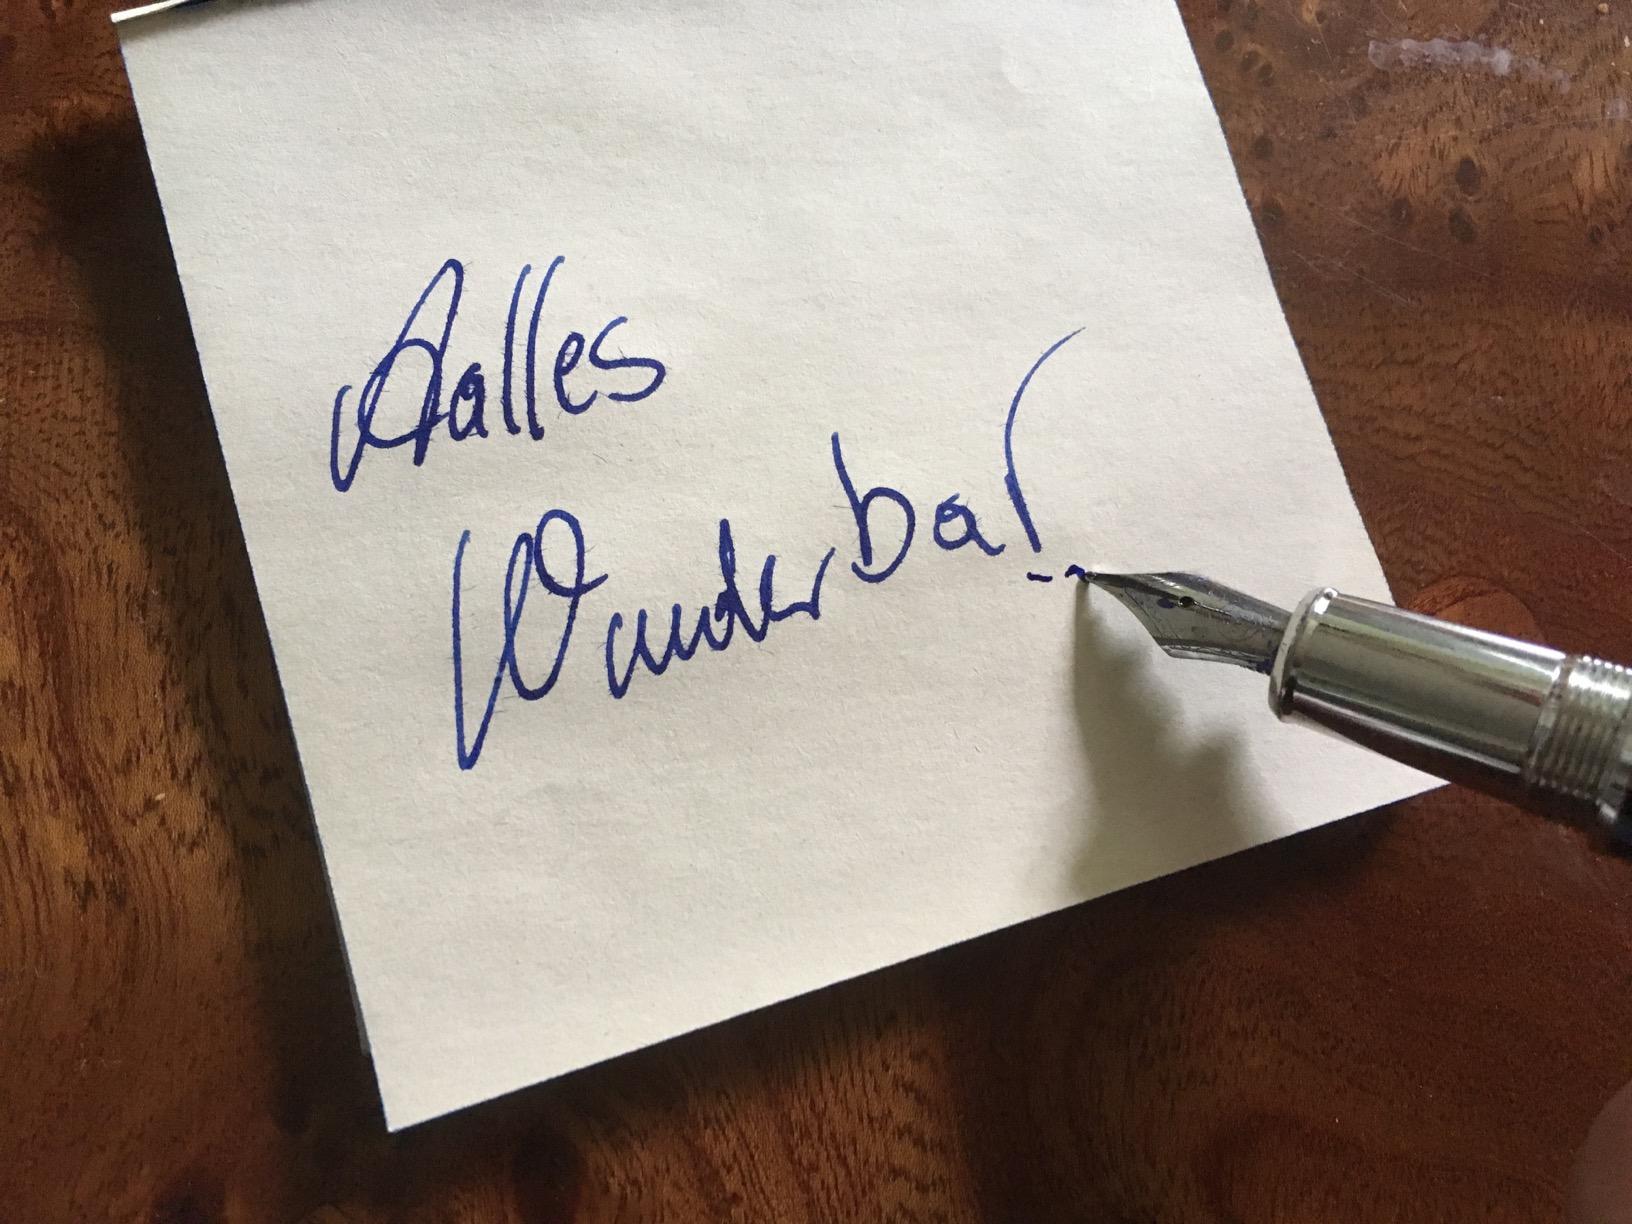 Aalles
Wunderbar..